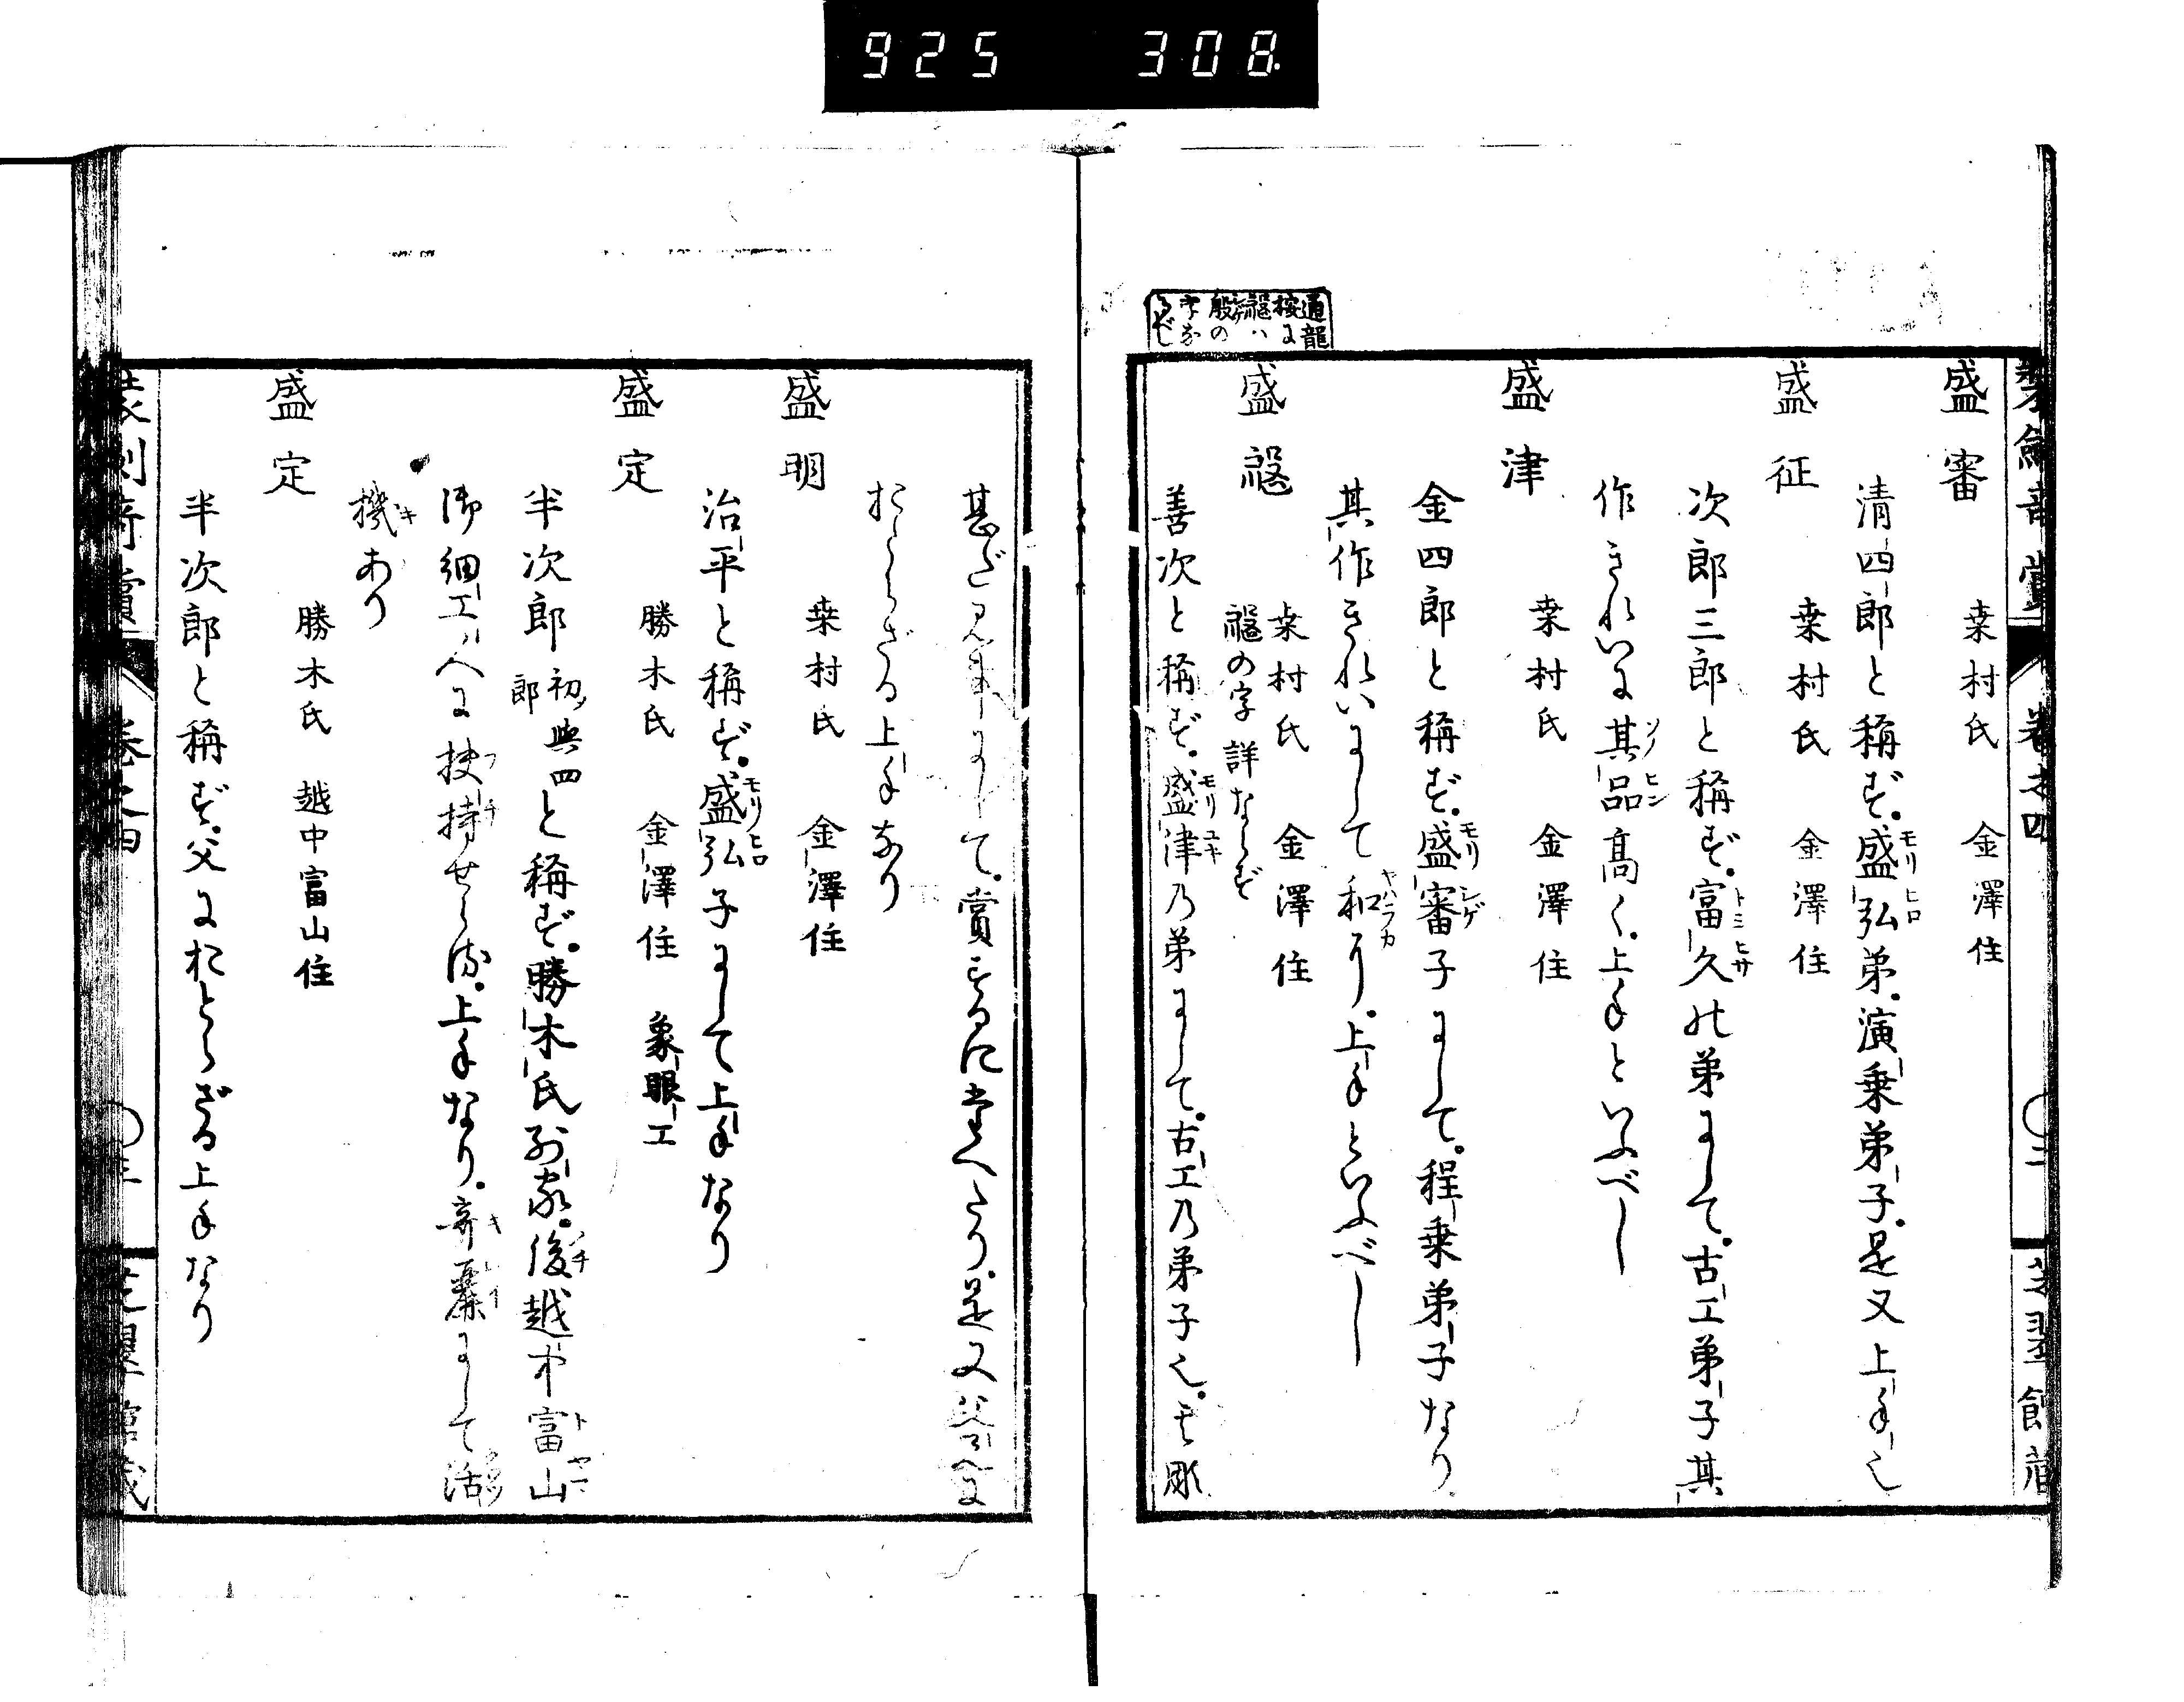 925 308
盛審 桒村氏 金澤住
清四郎と稱ず。盛弘弟。演乗弟子。是又上手也
盛征 桒村氏 金澤住
次郎三郎と稱ず。富久の弟にして。古工弟子其
作きれいに其品高く。上手といふべし
盛津 桒村氏 金澤住
金四郎と稱ず。盛審子にして。程乗弟子なり
其作きれいにして和り。上手といふべし
盛 桒村氏 金澤住
の字詳ならず
善次と稱ず。盛津乃弟にして。古工乃弟子也。其彫
通龍
按に
ハ
殷の
字な
るべし
甚だ見事にして。賞するに堂へたり。是又
おとらざる上手なり
盛明 桒村氏 金澤住
治平と稱ず。盛弘子にして上手なり
盛定 勝木氏 金澤住 象眼工
半次郎初與四郎と稱ず。勝木氏別家。後越中富山
御細工人に扶持せらる。上手なり。奇麗にして活
機あり
盛定 勝木氏 越中富山住
半次郎と稱ず。父におとらざる上手なり